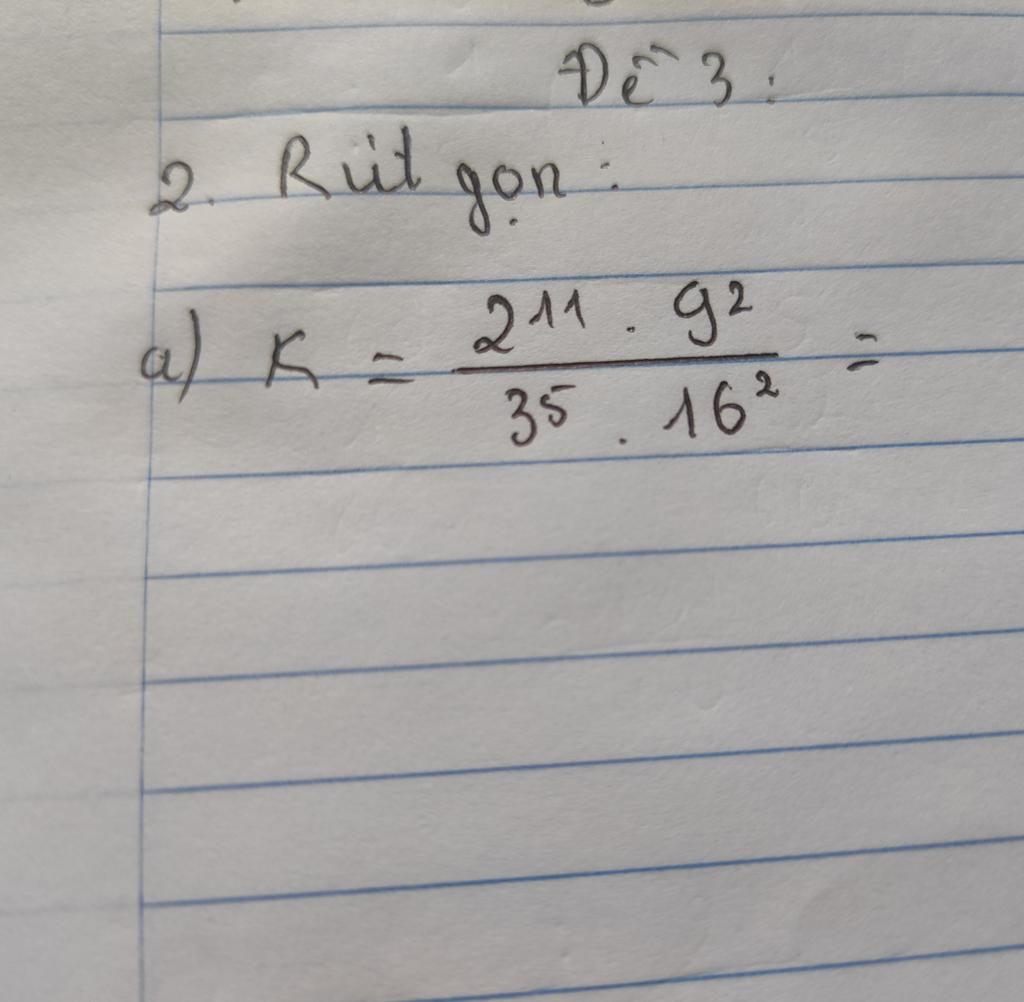 Đề 3 :
2. Rút gọn :
a) K = \frac{2^{11} . 9^2}{3^5 . 16^2} =